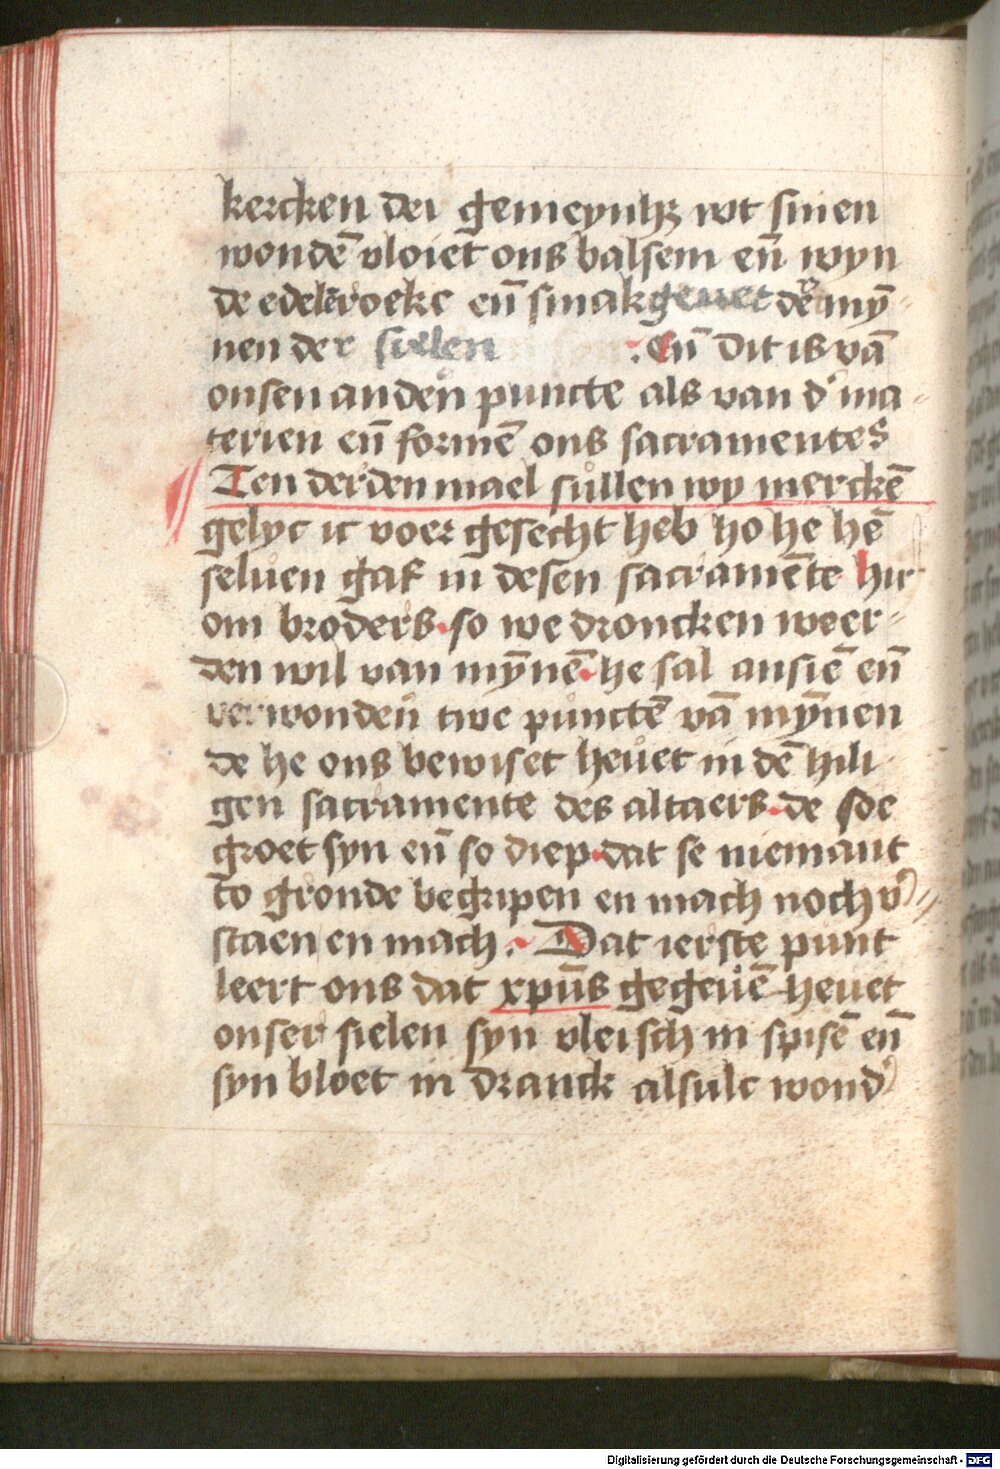 kercken der gemeynhz wt sinen
wondē vloiet ons balsem eñ wyn
de edelē roeke eñ smak geuet der mȳ-
nen der sielen . Eñ dit is vā
onsen anden puncte als van d' ma-
terien eñ formē ons sacramentes
Ten derden mael sullen wy merckē
gelyc ic voer gesecht heb ho he hē
seluen gaf in desen sacramēte hir
om broders so we droncken weer-
den wil van mȳnē he sal ansiē eñ
verwonden twe punctē vā mȳnen
de he ons bewiset heuet in dē hili
gen sacramente des altaers de soe
groet syn eñ so diep dat se niemant
to gronde begripen en mach noch v'
staen en mach. Dat ierste punt
leert ons dat xp̄us gegeuē heuet
onser sielen syn vleisch in spisē eñ
syn bloet in dranck alsulc wond'
Digitalisierung gefördert durch die Deutsche Forschungsgemeinschaft - DFG